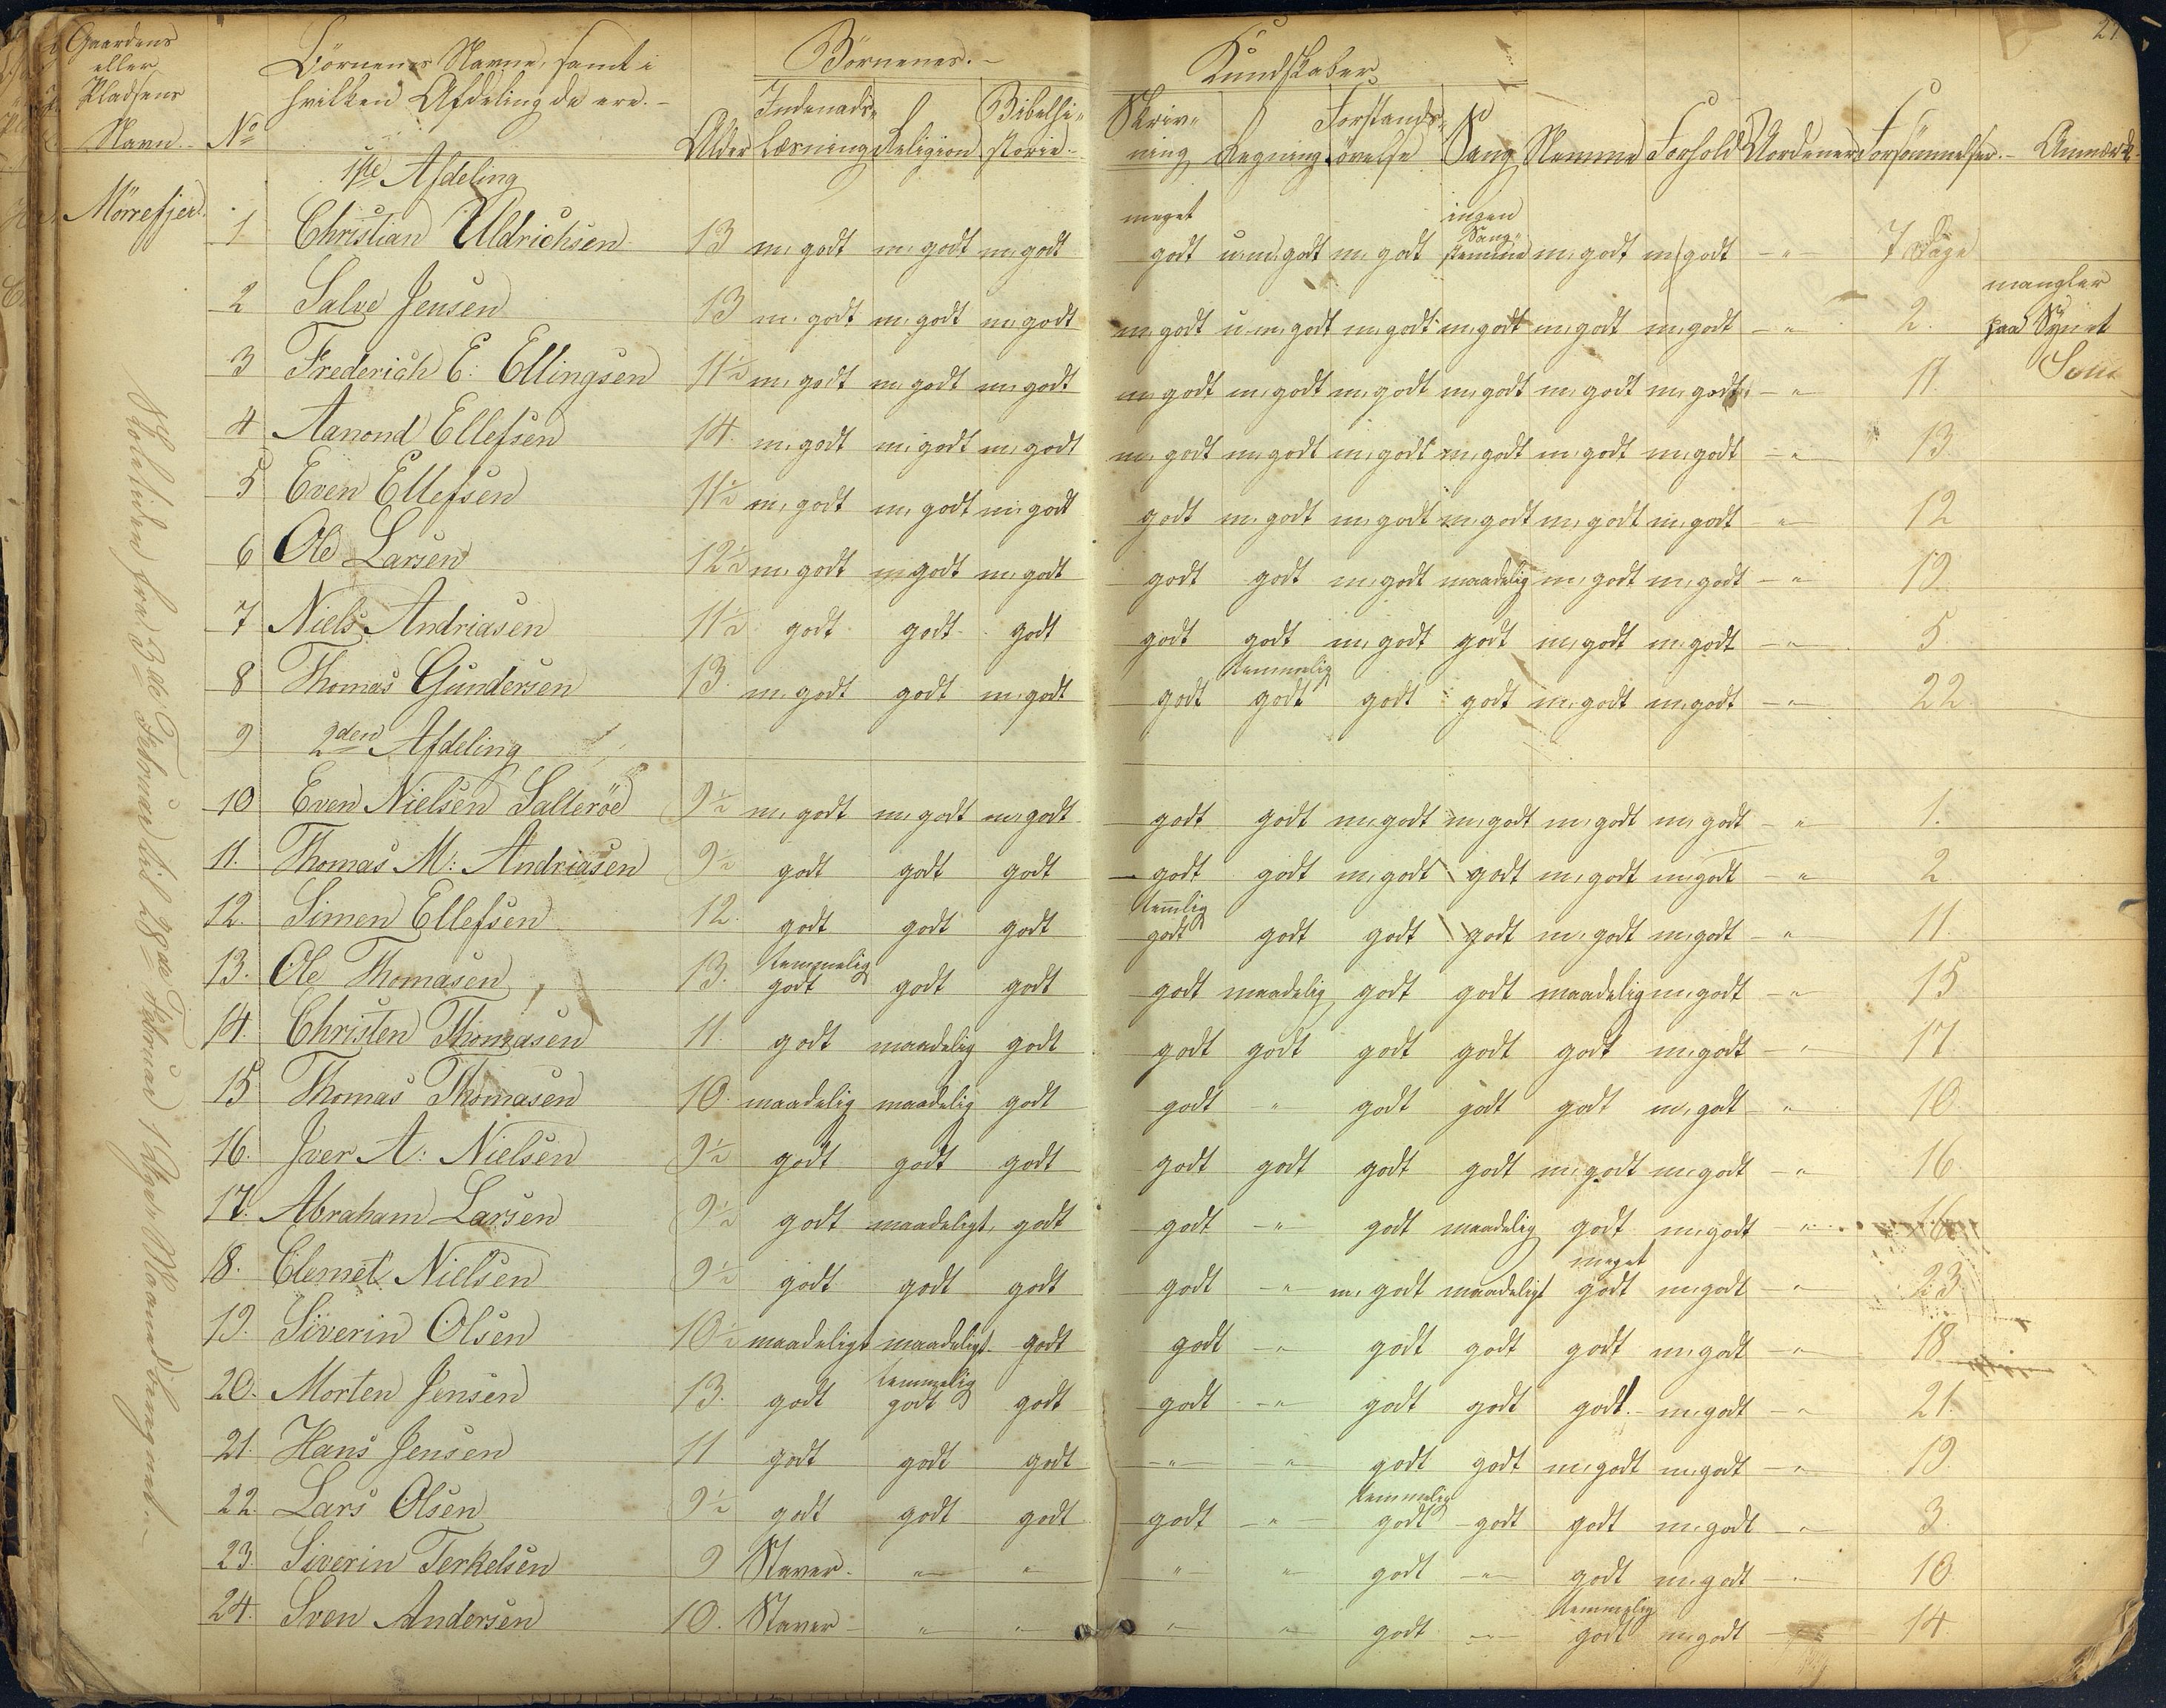 27
Gaardens
eller
Pladsens
Navn.
No
Börnenes Navne, samt i
hvilken Afdeling de ere.
Börnenes.
Kundskaber
Alder
Indenads-
læsning
Religion
Bibelhi-
storie
Skriv-
ning
Regning
Forstands-
øvelse
Sang
Nemme
Forhold
Nordener
Forsömmelser.
Anmærk.
1ste Afdeling
Mörrefjer
1 Christian Uldrichsen 13 m. godt m. godt m. godt meget godt u. m. godt m. godt ingen Sang- stemme m. godt m. godt - " - 7 Dage
2 Salve Jensen 13 m. godt m. godt m. godt m. godt u. m. godt m. godt m. godt m. godt m. godt - " - 2. mangler paa Synet
3 Frederich E. Ellingsen 11½ m. godt m. godt m. godt m. godt m. godt m. godt m. godt m. godt m. godt - " 11.
4 Aanond Ellefsen 14. m. godt m. godt m. godt m. godt m. godt m. godt m. godt m. godt m. godt - " 13
5 Even Ellefsen 11½ m. godt m. godt m. godt godt m. godt m. godt m. godt m. godt m. godt - " - 12
6 Ole Larsen 12½ m. godt m. godt m. godt godt godt m. godt maadelig m. godt m. godt - " 19.
7 Niels Andriasen 11½ godt godt godt godt godt m. godt godt m. godt m. godt - " - 5
8 Thomas Gundersen 13. m. godt godt m. godt godt temmelig godt godt godt m. godt m. godt - " - 22.
9 2den Afdeling
10 Even Nielsen Salteröe 9½ m. godt m. godt m. godt godt godt m. godt m. godt m. godt m. godt - " 1.
11. Thomas M: Andriasen 9½ godt godt godt godt godt m. godt godt m. godt m. godt - " 2
12. Simen Ellefsen 12. godt godt godt temlig godt godt godt godt m. godt m. godt - " 11.
13. Ole Thomasen 13. temmelig godt godt godt godt maadelig godt godt maadelig m. godt - " 15
14. Christen Thomasen 11. godt maadelig godt godt godt godt godt godt m. godt - " 17
15 Thomas Thomasen 10. maadelig maadelig godt godt " godt godt godt m. godt - " 10.
16. Iver A: Nielsen 9½ godt godt godt godt godt godt godt m. godt m. godt - " 16
17. Abraham Larsen 9½ godt maadeligt godt godt - " - godt maadelig godt m. godt - " 16
18. Clemet Nielsen 9½ godt godt godt godt - " - m. godt maadeligt meget godt m. godt - " 23
19. Siverin Olsen 10½ maadeligt maadeligt godt godt - " godt godt godt m. godt - " 18
20. Morten Jensen 13. godt temmelig godt godt godt - " - godt godt godt m. godt - " 21.
21. Hans Jensen 11 godt godt godt - " - " - godt godt m. godt m. godt - " 19.
22. Lars Olsen 9½ godt godt godt godt - " - temmelig godt godt godt m. godt - " - 3.
23. Siverin Terkelsen 9 Staver - " - " - " " godt - " - godt m. godt - " 10
24. Sven Andersen 10. Staver - " " " " godt - " - temmelig godt m. godt - 14.
Skoletiden fra 3de Februar til 28de Februar